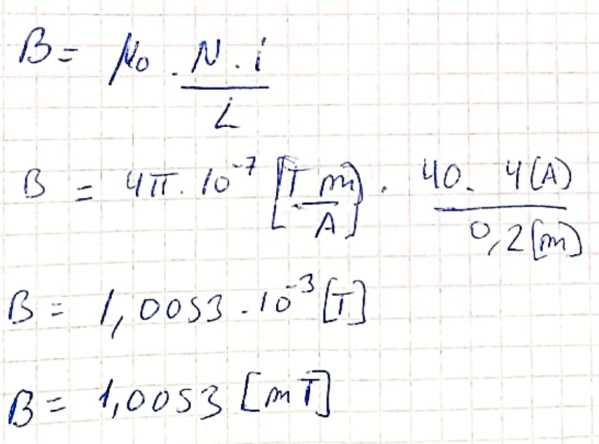 B = μ₀ · N · i / L
B = 4π · 10⁻⁷ [T m / A] · 40 · 4(A) / 0,2 [m]
B = 1,0053 · 10⁻³ [T]
B = 1,0053 [mT]